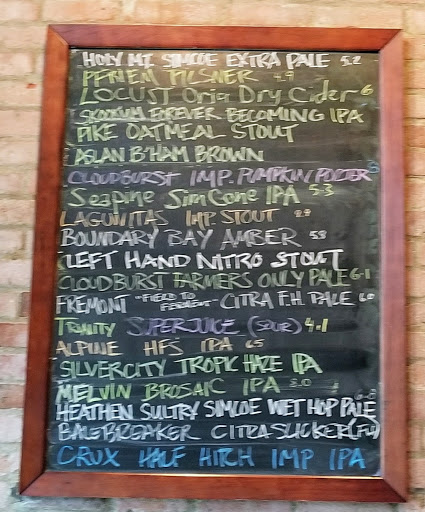 HOLY MT SIMCOE EXTRA PALE 5.2
PFRIEM PILSNER 4.9
LOCUST Orig Dry Cider 6
SKOOKUM FOREVER BECOMING IPA
PIKE OATMEAL STOUT
ASLAN B'HAM BROWN
CLOUDBURST IMP. PUMPKIN PORTER
Seapine SimCone IPA 5.3
LAGUNITAS IMP STOUT 9.9
BOUNDARY BAY AMBER 5.8
LEFT HAND NITRO STOUT
CLOUDBURST FARMERS ONLY PALE 6.1
FREMONT "FIELD TO FERMENT" CITRA F.H. PALE 6.0
TRINITY SUPERJUICE (SOUR) 4.1
ALPINE HFS IPA 6.5
SILVERCITY TROPIC HAZE IPA
MELVIN BROSAIC IPA 8.0
HEATHEN SULTRY SIMCOE WET HOP PALE 6.0
BALEBREAKER CITRA SLICKER (F.H.)
CRUX HALF HITCH IMP IPA